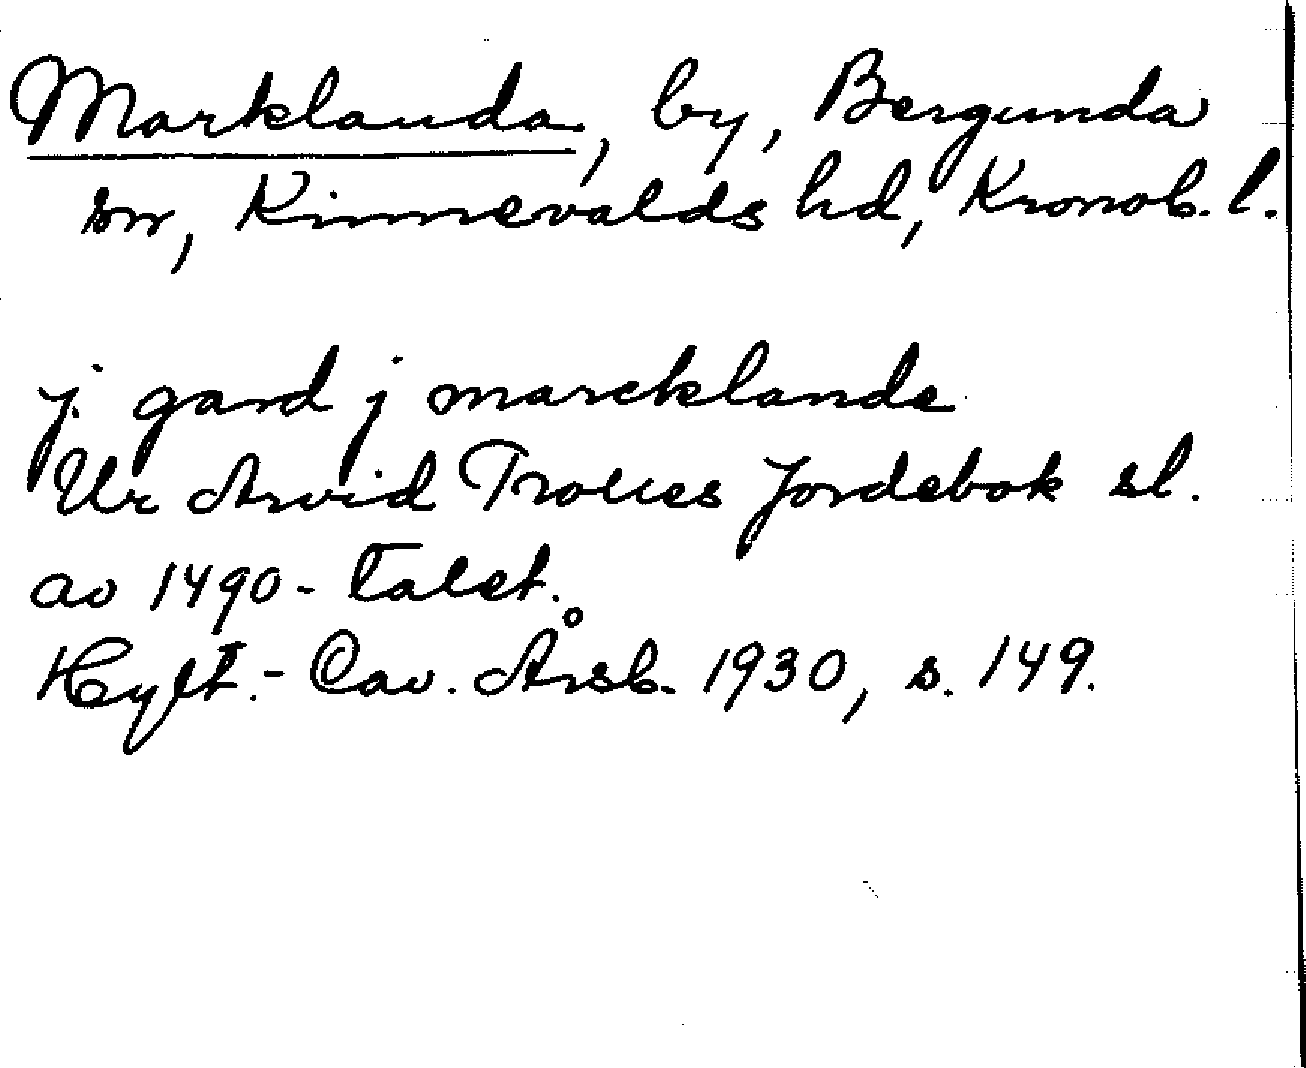 Marklanda, by, Bergunda
sn, Kinnevalds hd, Kronob. l.
j. gard j marcklanda
Ur Arvid Trolles Jordebok sl.
av 1490-talet.
Hylt.-Cav. Årsb. 1930, s. 149.